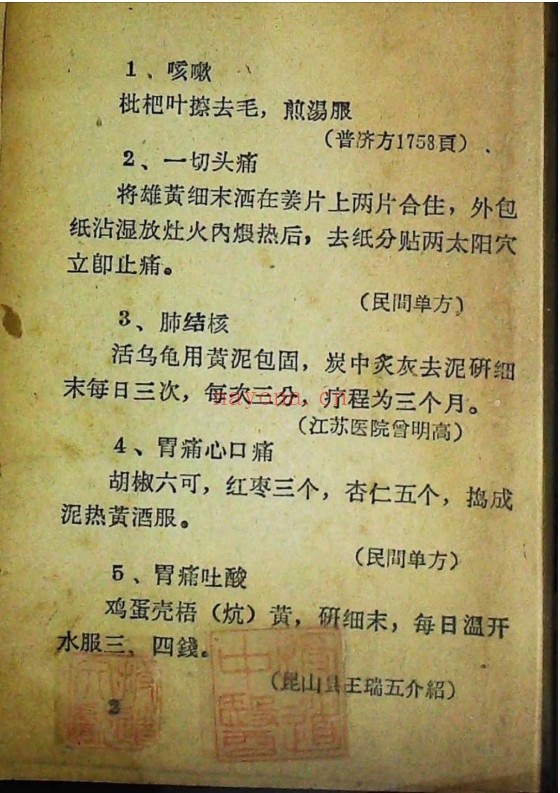 1、咳嗽
枇杷叶擦去毛，煎湯服
（普济方1758頁）
2、一切头痛
将雄黄细末洒在姜片上两片合住，外包
纸沾湿放灶火内煨热后，去纸分贴两太阳穴
立卽止痛。
（民間单方）
3、肺结核
活乌龟用黄泥包固，炭中炙灰去泥研细
末每日三次，每次三分，疗程为三个月。
（江苏医院曾明高）
4、胃痛心口痛
胡椒六可，红枣三个，杏仁五个，搗成
泥热黄酒服。
（民間单方）
5、胃痛吐酸
鸡蛋壳梧（炕）黄，研细末，每日溫开
水服三、四錢。
（昆山县王瑞五介紹）
2